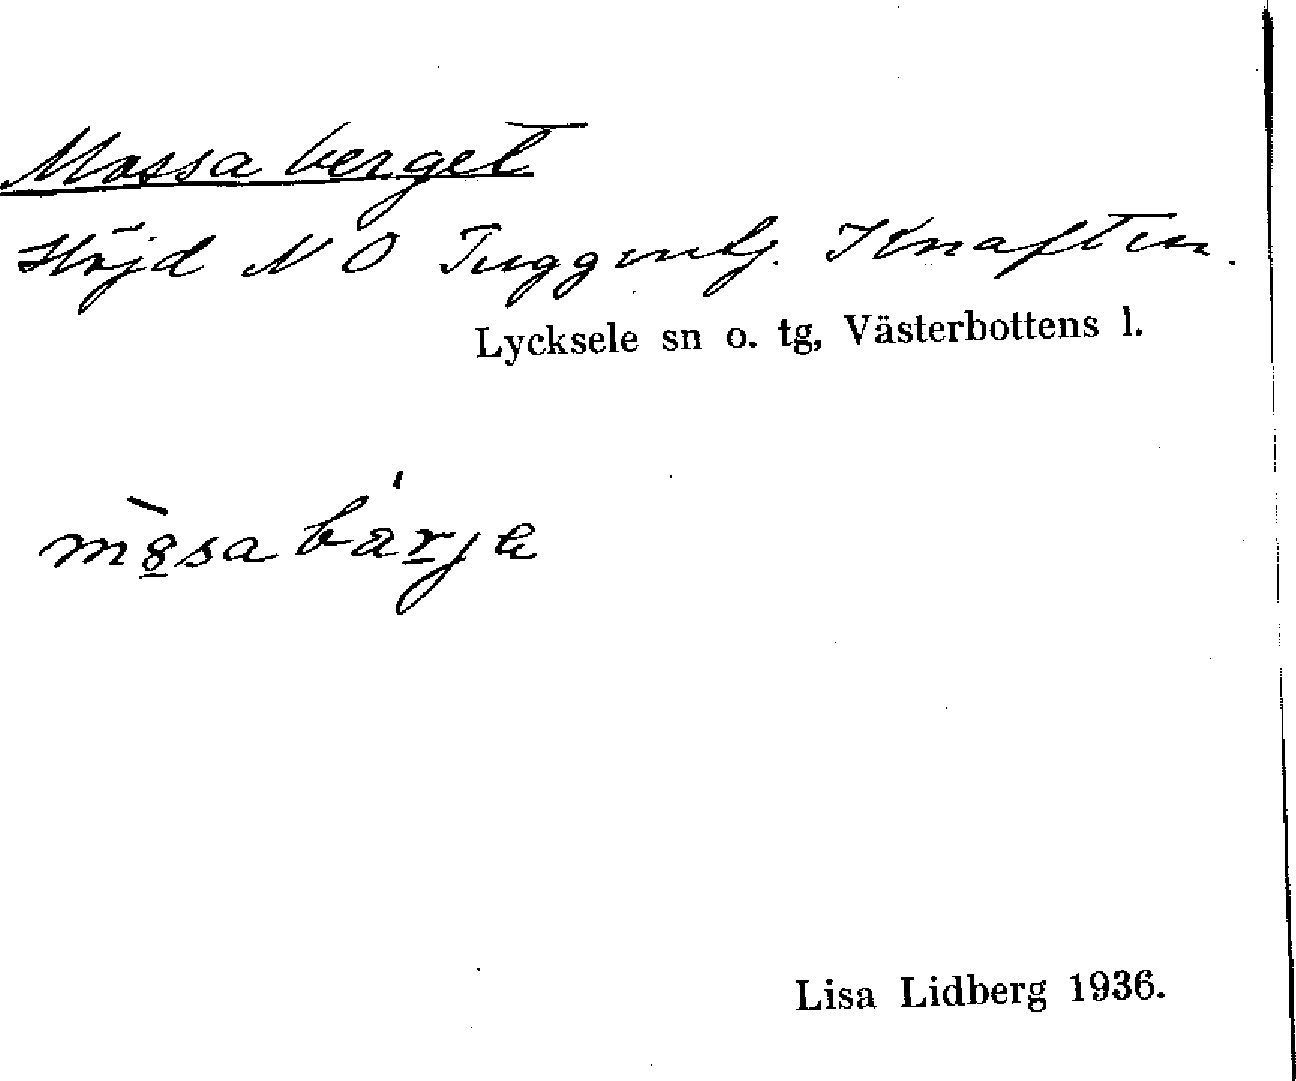 Mossaberget
Höjd NO Tuggenlj. Knaften.
Lycksele sn o. tg, Västerbottens l.
Lisa Lidberg 1936.